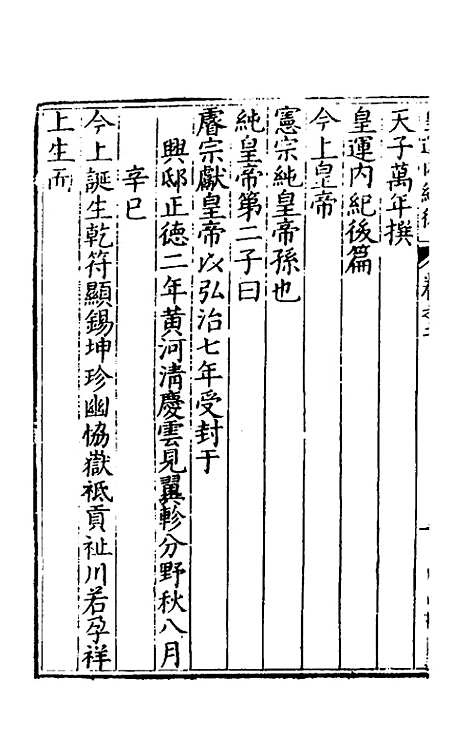 天子萬年撰
皇運內紀後篇
今上皇帝
憲宗純皇帝孫也
純皇帝第二子曰
睿宗獻皇帝以弘治七年受封于
興邸正德二年黃河清慶雲見翼軫分野秋八月
辛巳
今上誕生乾符顯錫坤珍幽恊嶽祗貢祉川若孕祥
上生而